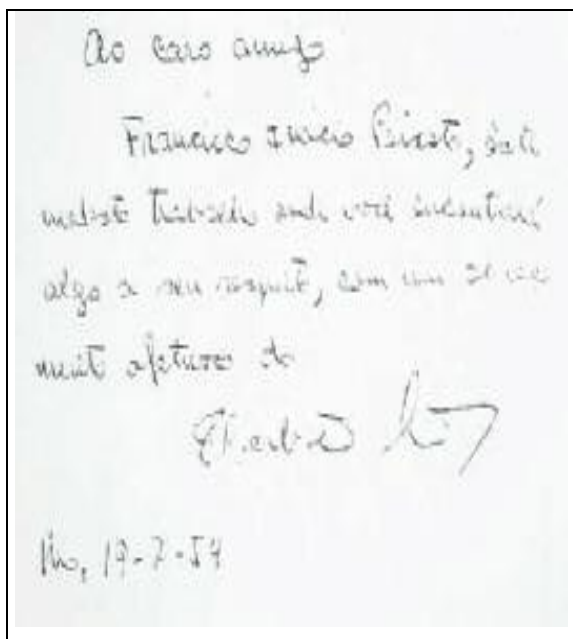 Ao caro amigo
Francisco Inácio Peixoto, este
modesto trabalho onde você encontrará
algo a seu respeito, com um
muito afetuoso do
Rio, 19-7-54